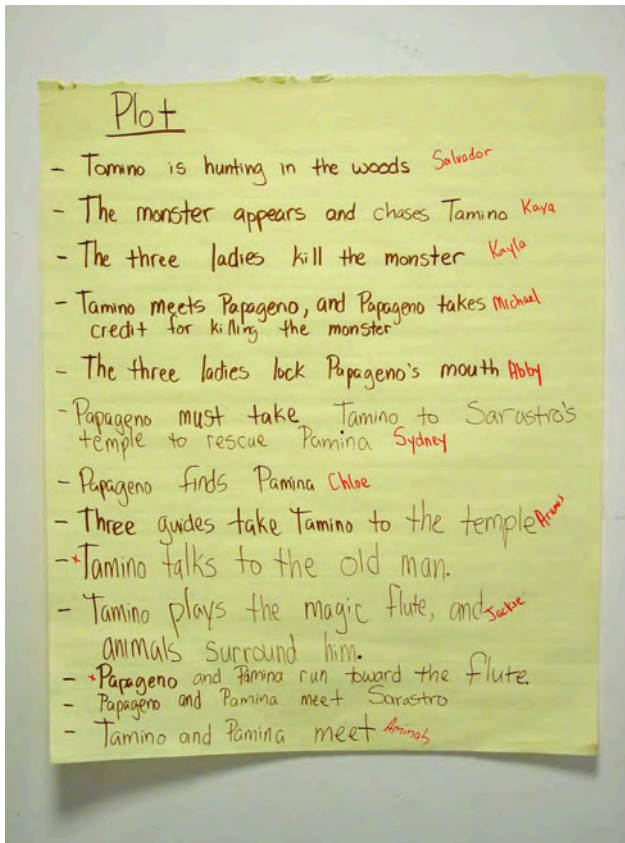 Plot
- Tamino is hunting in the woods Salvador
- The monster appears and chases Tamino Kaya
- The three ladies kill the monster Kayla
- Tamino meets Papageno, and Papageno takes Michael
credit for killing the monster
- The three ladies lock Papageno's mouth Abby
- Papageno must take Tamino to Sarastro's
temple to rescue Pamina Sydney
- Papageno finds Pamina Chloe
- Three guides take Tamino to the temple
- *Tamino talks to the old man.
- Tamino plays the magic flute, and Jackie
animals surround him.
- *Papageno and Pamina run toward the flute.
- Papageno and Pamina meet Sarastro
- Tamino and Pamina meet Aminah